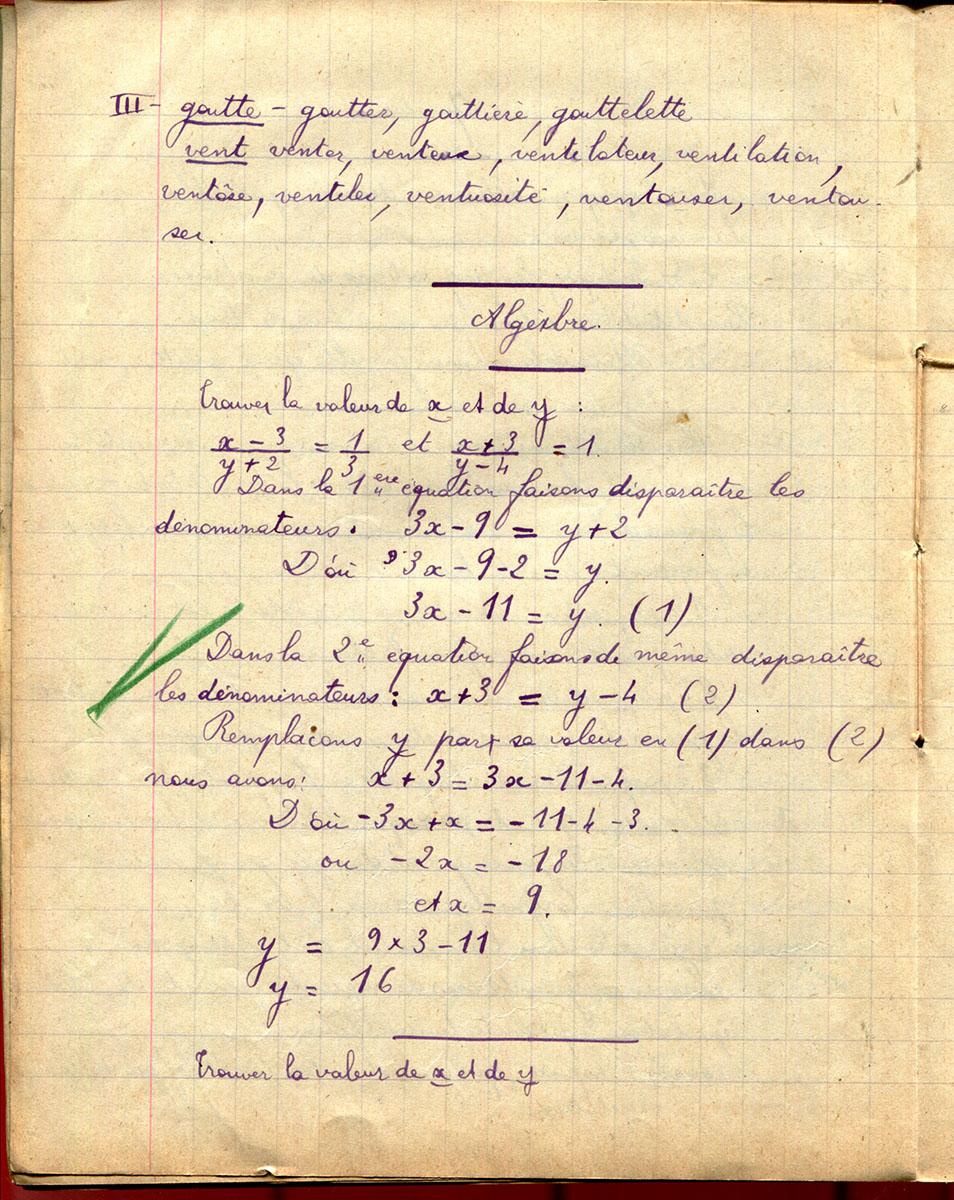 III - goutte - goutter, gouttière, gouttelette
vent venter, venteux, ventilateur, ventilation,
ventôse, ventiler, ventuosité, ventouser, ventou-
ser.
Algèbre.
Trouver la valeur de x et de y :
x - 3 / y + 2 = 1 / 3 et x + 3 / y - 4 = 1.
Dans la 1ère équation faisons disparaître les
dénominateurs. 3x - 9 = y + 2
D'où 3x - 9 - 2 = y.
3x - 11 = y. (1)
Dans la 2e équation faisons de même disparaître
les dénominateurs : x + 3 = y - 4 (2)
Remplaçons y par sa valeur en (1) dans (2)
nous avons : x + 3 = 3x - 11 - 4.
D'où - 3x + x = - 11 - 4 - 3.
ou - 2x = - 18
et x = 9.
y = 9 x 3 - 11
y = 16
Trouver la valeur de x et de y